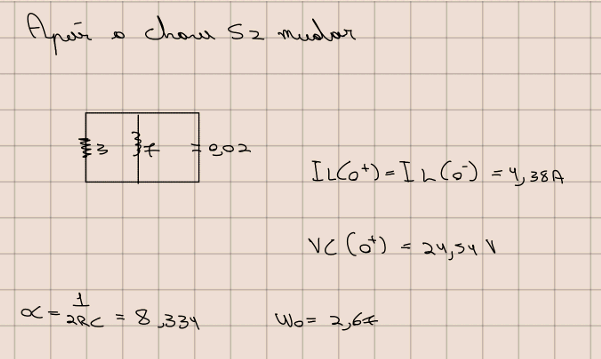 Após a chave S2 mudar
3 7 0,02
IL(0⁺) = IL(0⁻) = 4,38A
VC(0⁺) = 24,54 V
α = 1/2RC = 8,334 ω₀ = 2,67